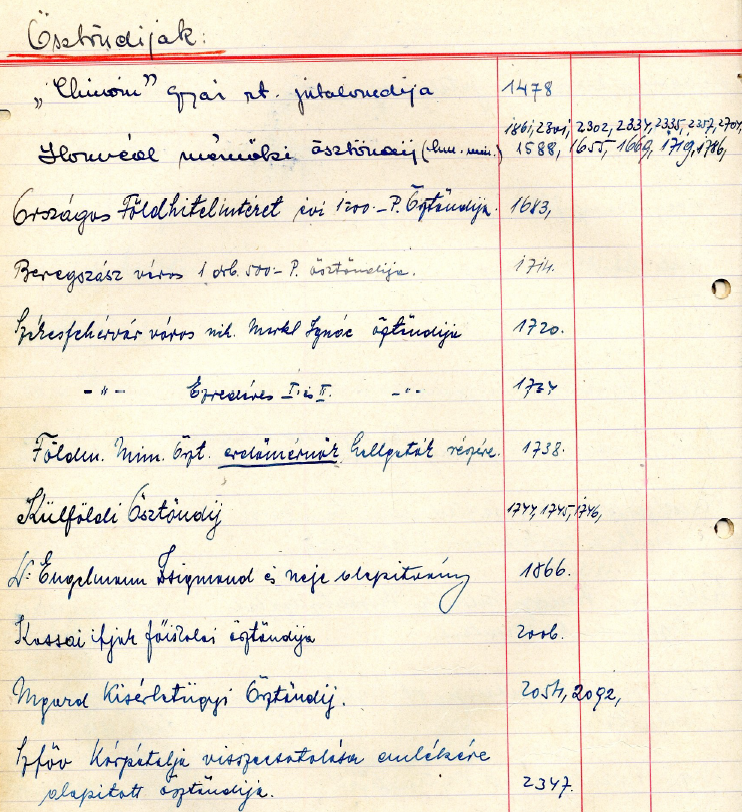 Ösztöndijak:
„Chinoin” gyár rt. jutalomdija 1478
1861, 2301, 2302, 2334, 2335, 2357, 2704,
Honvéd mérnöki ösztöndij (hm. min.) 1588, 1655, 1669, 1719, 1786,
Országos Földhitelintézet évi 1200.- P. Ösztöndija. 1683,
Beregszász város 1 drb. 500.- P. ösztöndija. 1714.
Székesfehérvár város néh. Merkl Ignác ösztöndija 1720.
- " - Ezredéves I. és II. - " - 1724
Földm. Min. Öszt. erdőmérnök hallgatók részére. 1738.
Külföldi Ösztöndij 1744, 1745, 1746,
Dr. Engelmann Zsigmond és neje alapitvány 1866.
Kassai ifjak főiskolai ösztöndija 2006.
Mgazd Kisérletügyi Ösztöndij. 2054, 2092,
Szföv Kárpátalja visszacsatolása emlékére
alapitott ösztöndija. 2347.